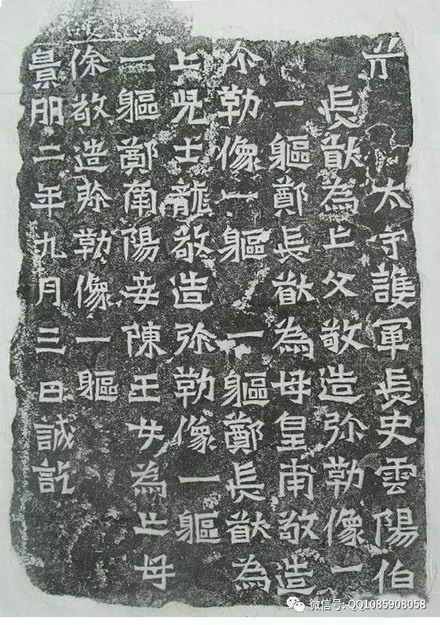 太守護軍長史雲陽伯
長猷為亡父敬造弥勒像一
一軀鄭長猷為母皇甫敬造
弥勒像一軀 一軀鄭長猷為
亡児士龍敬造弥勒像一軀
一軀鄭南陽妾陳玉女為亡母
徐敬造弥勒像一軀
景明二年九月三日誠訖
微信号: QQ1085908058